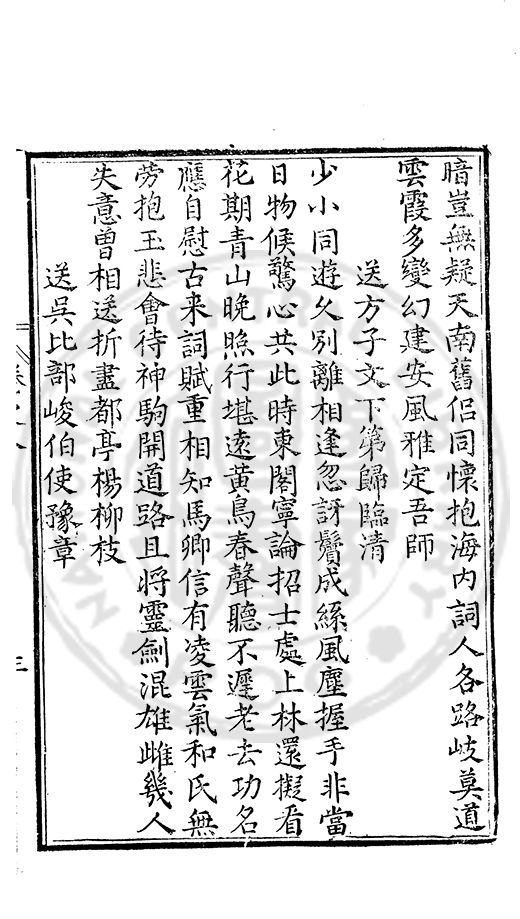 暗豈無疑天南舊侶同懷抱海内詞人各路岐莫道
雲霞多變幻建安風雅定吾師
送方子文下第歸臨清
少小同遊久别離相逢忽訝鬢成絲風塵握手非當
日物候驚心共此時東閣寧論招士處上林還擬看
花期青山晚照行堪遠黄鳥春聲聽不遲老去功名
應自慰古来詞賦重相知馬卿信有凌雲氣和氏無
勞抱玉悲會待神駒開道路且將靈劍混雄雌幾人
失意曾相送折盡都亭楊柳枝
送吳比部峻伯使豫章
三